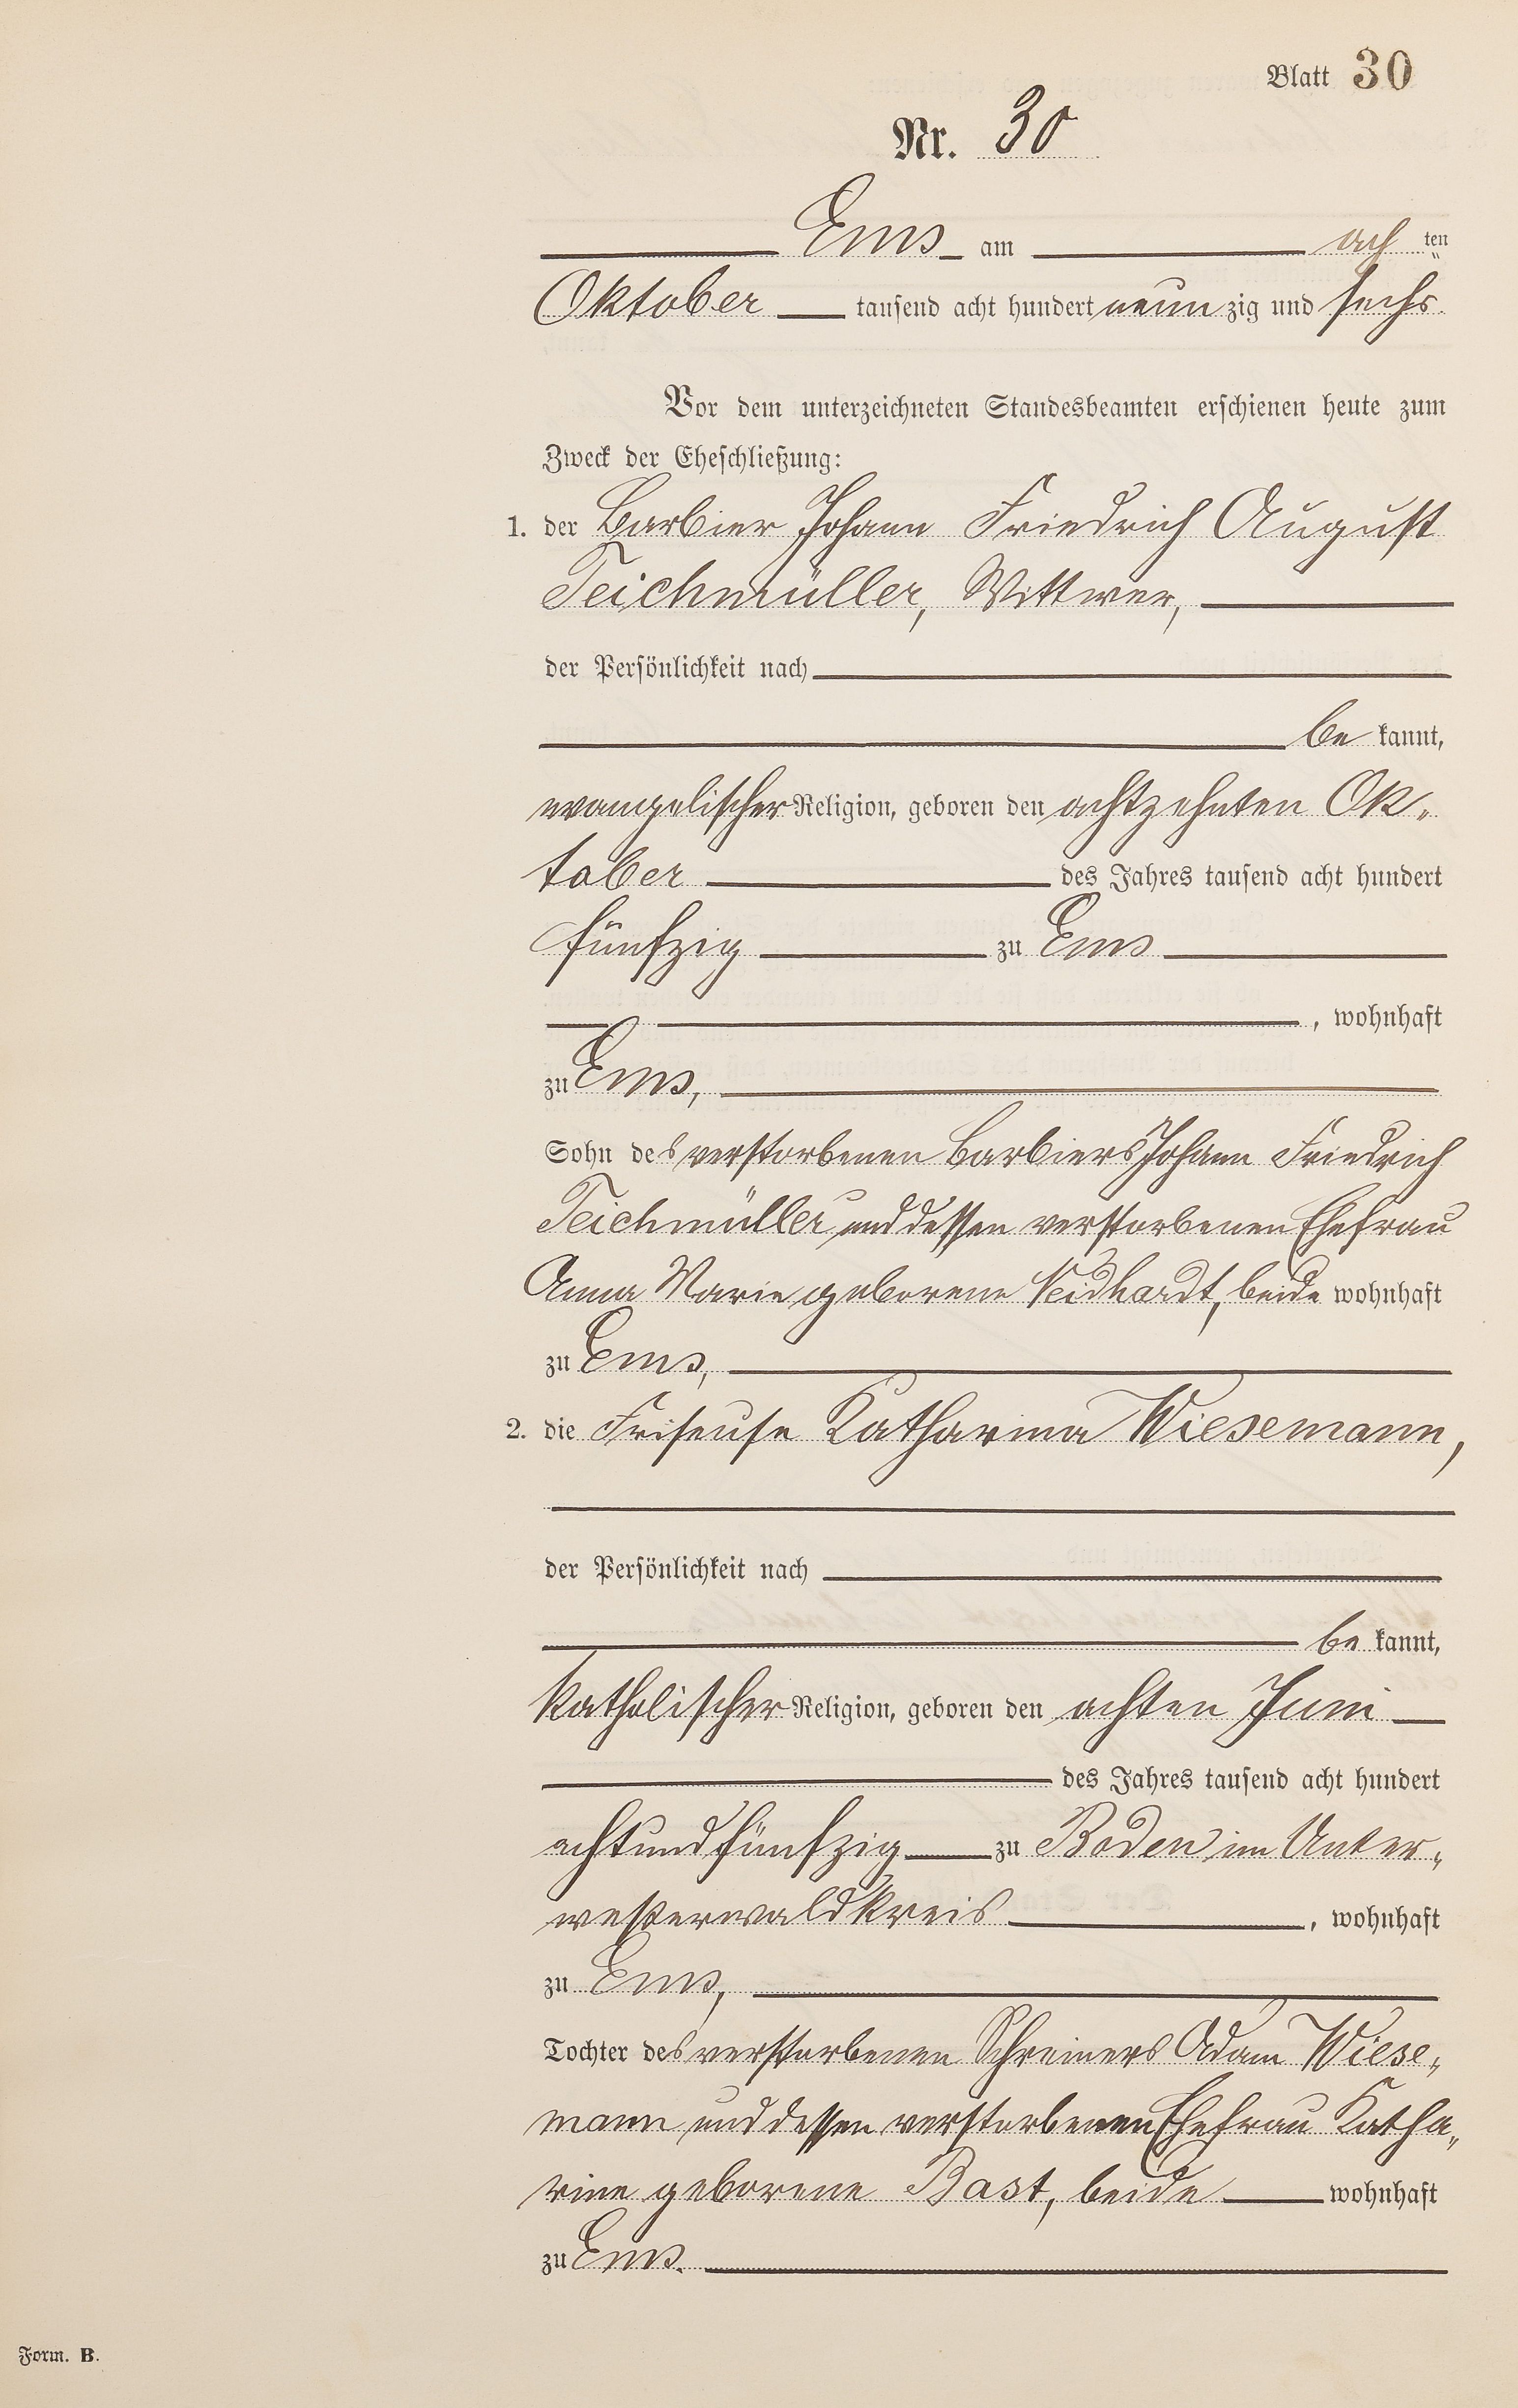 Blatt 30
Nr. 30
Ems am ach ten
Oktober tausend acht hundert neun zig und sechs
Vor dem unterzeichneten Standesbeamten erschienen heute zum
Zweck der Eheschließung:
1. der Barbier Johann Friedrich August
Teichmüller, Wittwer,
der Persönlichkeit nach
be kannt,
evangelischer Religion, geboren den achtzehnten Ok-
tober des Jahres tausend acht hundert
fünfzig zu Ems
, wohnhaft
zu Ems,
Sohn des verstorbenen Barbiers Johann Friedrich
Teichmüller und dessen verstorbenen Ehefrau
Anna Marie geborene Neidhardt, beide wohnhaft
zu Ems,
2. die Friseuse Katharina Wiesemann,
der Persönlichkeit nach
be kannt,
katholischer Religion, geboren den achten Juni
des Jahres tausend acht hundert
achtundfünfzig zu Boden im Unter-
westerwaldkreis , wohnhaft
zu Ems,
Tochter des verstorbenen Schreiners Adam Wiese-
mann und dessen verstorbenen Ehefrau Katha-
rine geborene Bast, beide wohnhaft
zu Ems.
Form. B.